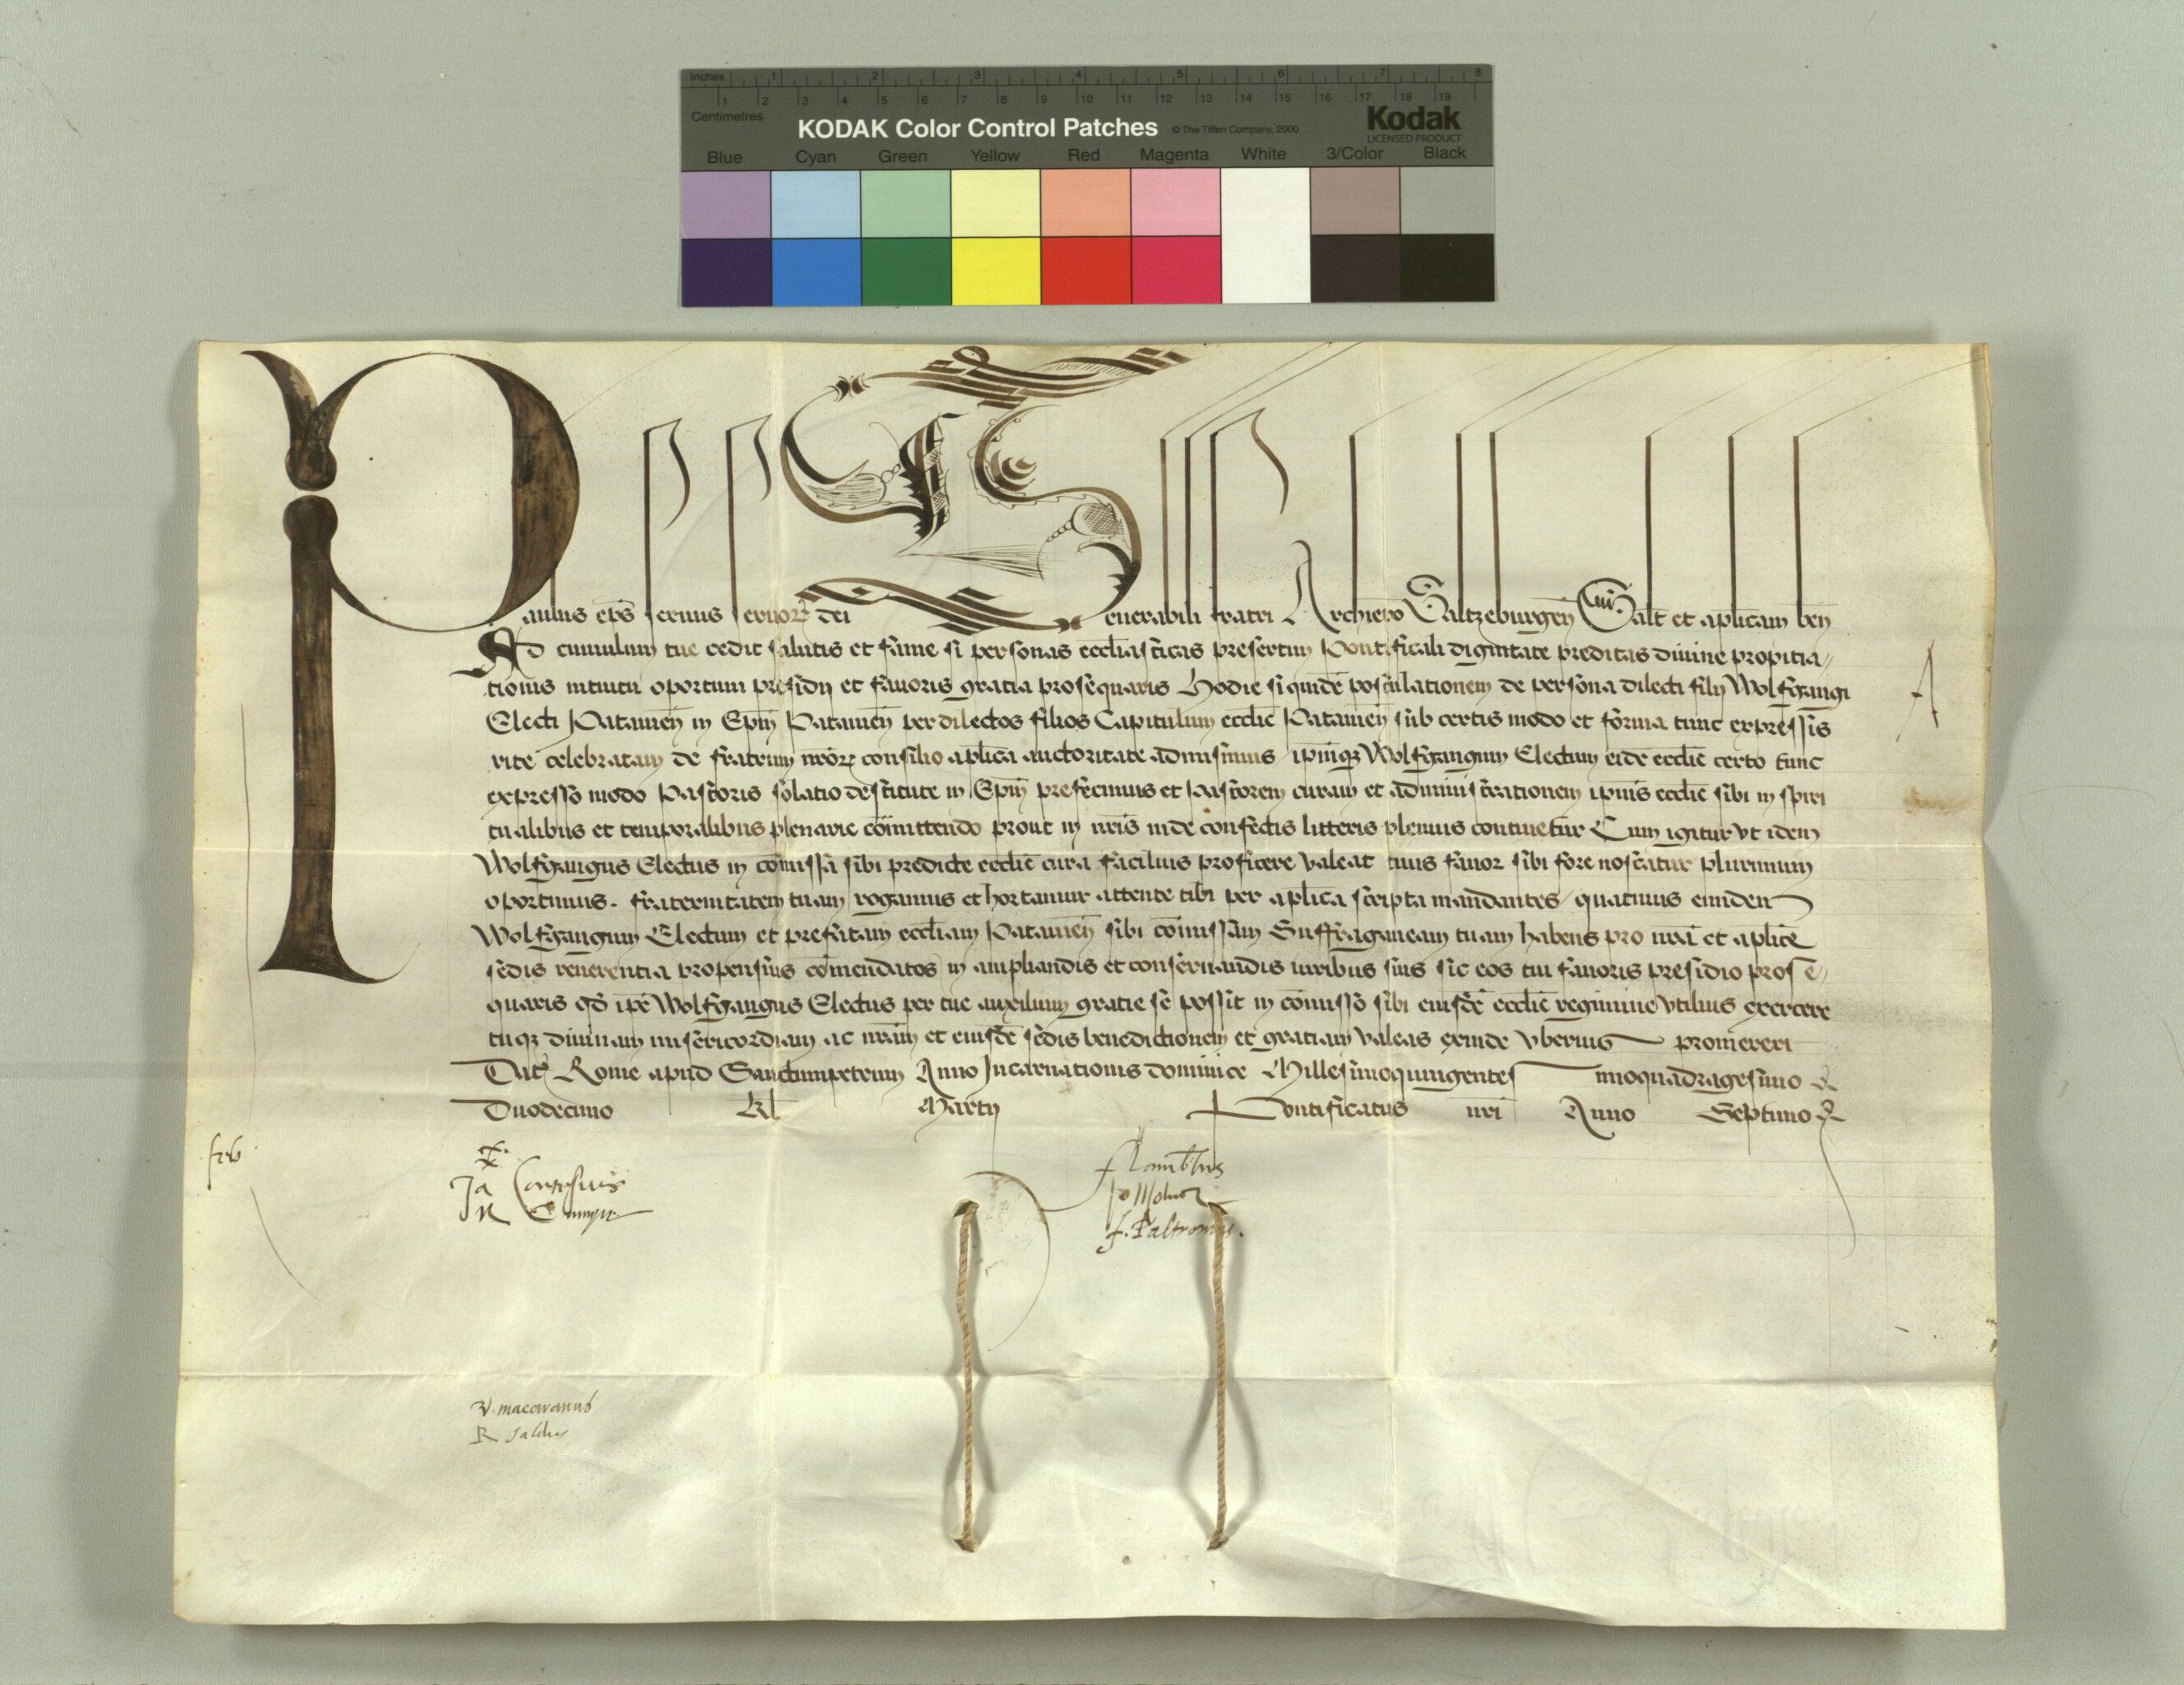 Inches 1 2 3 4 5 6 7 8
1 2 3 4 5 6 7 8 9 10 11 12 13 14 15 16 17 18 19
Centimetres
KODAK Color Control Patches © The Tiffen Company, 2000 Kodak
LICENSED PRODUCT
Blue Cyan Green Yellow Red Magenta White 3/Color Black
Paulus ep̄s seruus seruoꝝ dei Venerabili fratri Archiep̄o Saltzeburgeñ Salt̄ et ap̄licam ben̄
Ad cumulum tue cedit salutis et fame si personas eccl̄iasticas presertim Pontificali dignitate preditas diuine propitia//
tionis intuitu oportuni presidij et fauoris gratia prosequaris Hodie siquidē postulationem de persona dilecti filij Wolfgangi
Electi Patauieñ in Ep̄m̄ Patauieñ per dilectos filios Capitulum eccl̄ie Patauieñ sub certis modo et forma tunc expressis
rite celebratam de fratrum nr̄oꝝ consilio ap̄lica auctoritate admisimus ip̄umqꝫ Wolfgangum Electum eidē eccl̄ie certo tunc
expresso modo Pastoris solatio destitute in Ep̄m̄ prefecimus et Pastorem curam et administrationem ip̄ius eccl̄ie sibi in spiri
tualibus et temporalibus plenarie com̄ittendo prout in nr̄is inde confectis litteris plenius continetur Cum igitur vt idem
Wolfgangus Electus in com̄issa sibi predicte eccl̄ie cura facilius proficere valeat tuus fauor sibi fore noscatur plurimum
oportunus. fraternitatem tuam rogamus et hortamur attente tibi per ap̄lica scripta mandantes/ quatinus eundem
Wolfgangum Electum et prefatam eccl̄iam Patauieñ sibi com̄issam Suffraganeam tuam habens pro nr̄a et ap̄lice
sedis reuerentia propensius com̄endatos in ampliandis et conseruandis iuribus suis sic eos tui fauoris presidio prose//
quaris qđ ip̄e Wolfgangus Electus per tue auxilium gratie se possit in com̄isso sibi eiusdē eccl̄ie regimine vtilius exercere
tuqꝫ diuinam misericordiam ac nr̄am et eiusdē sedis benedictionem et gratiam valeas exinde vberius promereri
Dat̄ Rome apud Sanctumpetrum Anno Incarnationis dominice Millesimoquingentes imoquadragesimo
Duodecimo Kl̄ Martij Pontificatus nr̄i Anno Septimo
feb
Ja
f. Paltronus.
V. macaranus